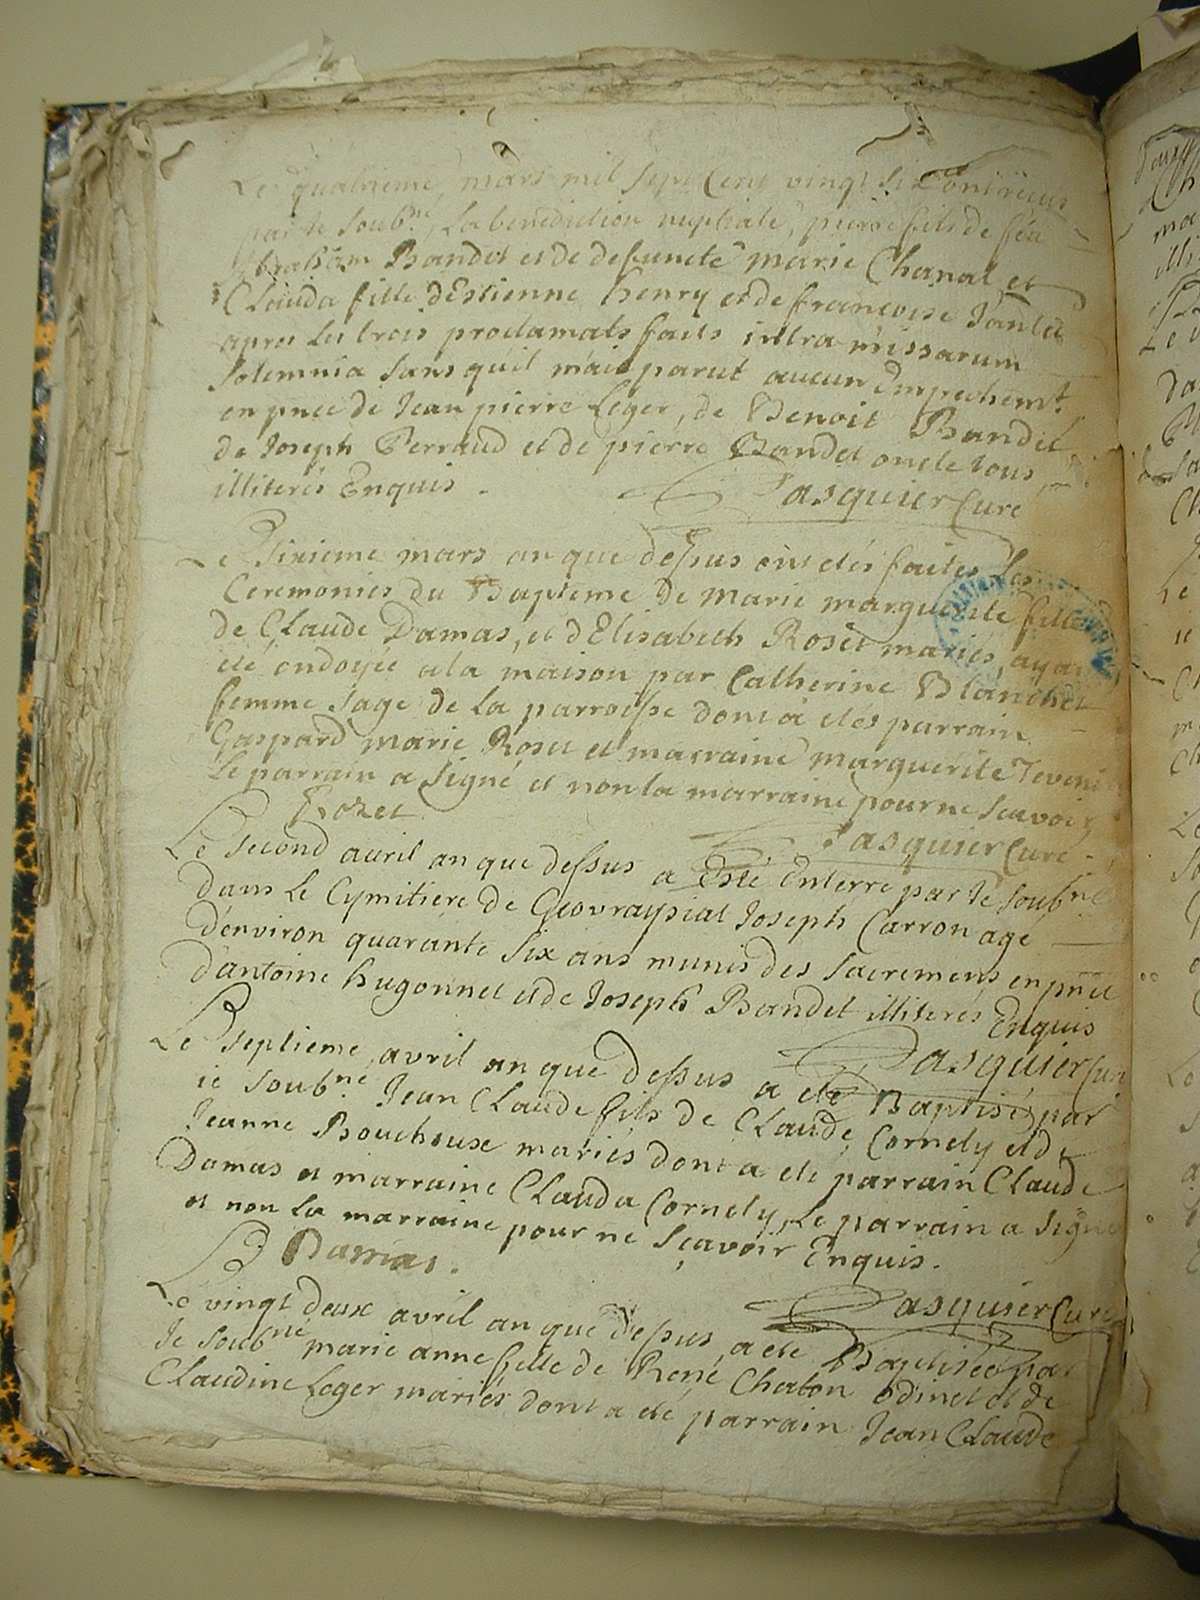 Le quatrieme mars mil sept Cent vingt six ont receus
par le soubné, La benediction nuptiale, pierre fils de feu
Abraham Bandet et de defuncte marie Chanal et
Clauda fille dEstienne henry et de francoise Jantet
apres les trois proclamats faits intra missarum
Solemnia sans quil m'aie parut aucun Empechemt.
en pnce de Jean pierre Leger, de Benoit Bandet
de Joseph Perraud et de pierre Bandet oncle tous
illiterés Enquis.
Pasquier Curé
Le Sixieme mars an que dessus ont etés faites Les
Ceremonies du Bapteme de marie marguerite fille
de Claude Damas, et dElisabeth Roset mariés, ayant
eté ondoyée a la maison par Catherine Blanchet
femme sage de la parroisse dont a etés parrain
Gaspard marie Roset et marraine marguerite
Le parrain a signé et non la marraine pour ne scavoir
Rozet
Pasquier Curé
Le second avril an que dessus a esté Enterré par le soubné
dans le Cymitiere de Geovraysiat Joseph Carron agé
d'environ quarante six ans munis des sacremens en pnce
d'antoine hugonnet et de Joseph Bandet illiterés Enquis
Pasquier Curé
Le septieme avril an que dessus a eté Baptisé par
ie soubné Jean Claude fils de Claude Cornely et de
Jeanne Bouchoux mariés dont a eté parrain Claude
Damas et marraine Clauda Cornely, Le parrain a signé
et non la marraine pour ne sçavoir Enquis.
Damas.
Pasquier Curé
Le vingt deux avril an que dessus, a eté Baptisée par
Je soubné marie anne fille de René Chaton odinet et de
Claudine Leger mariés dont a eté parrain Jean Claude